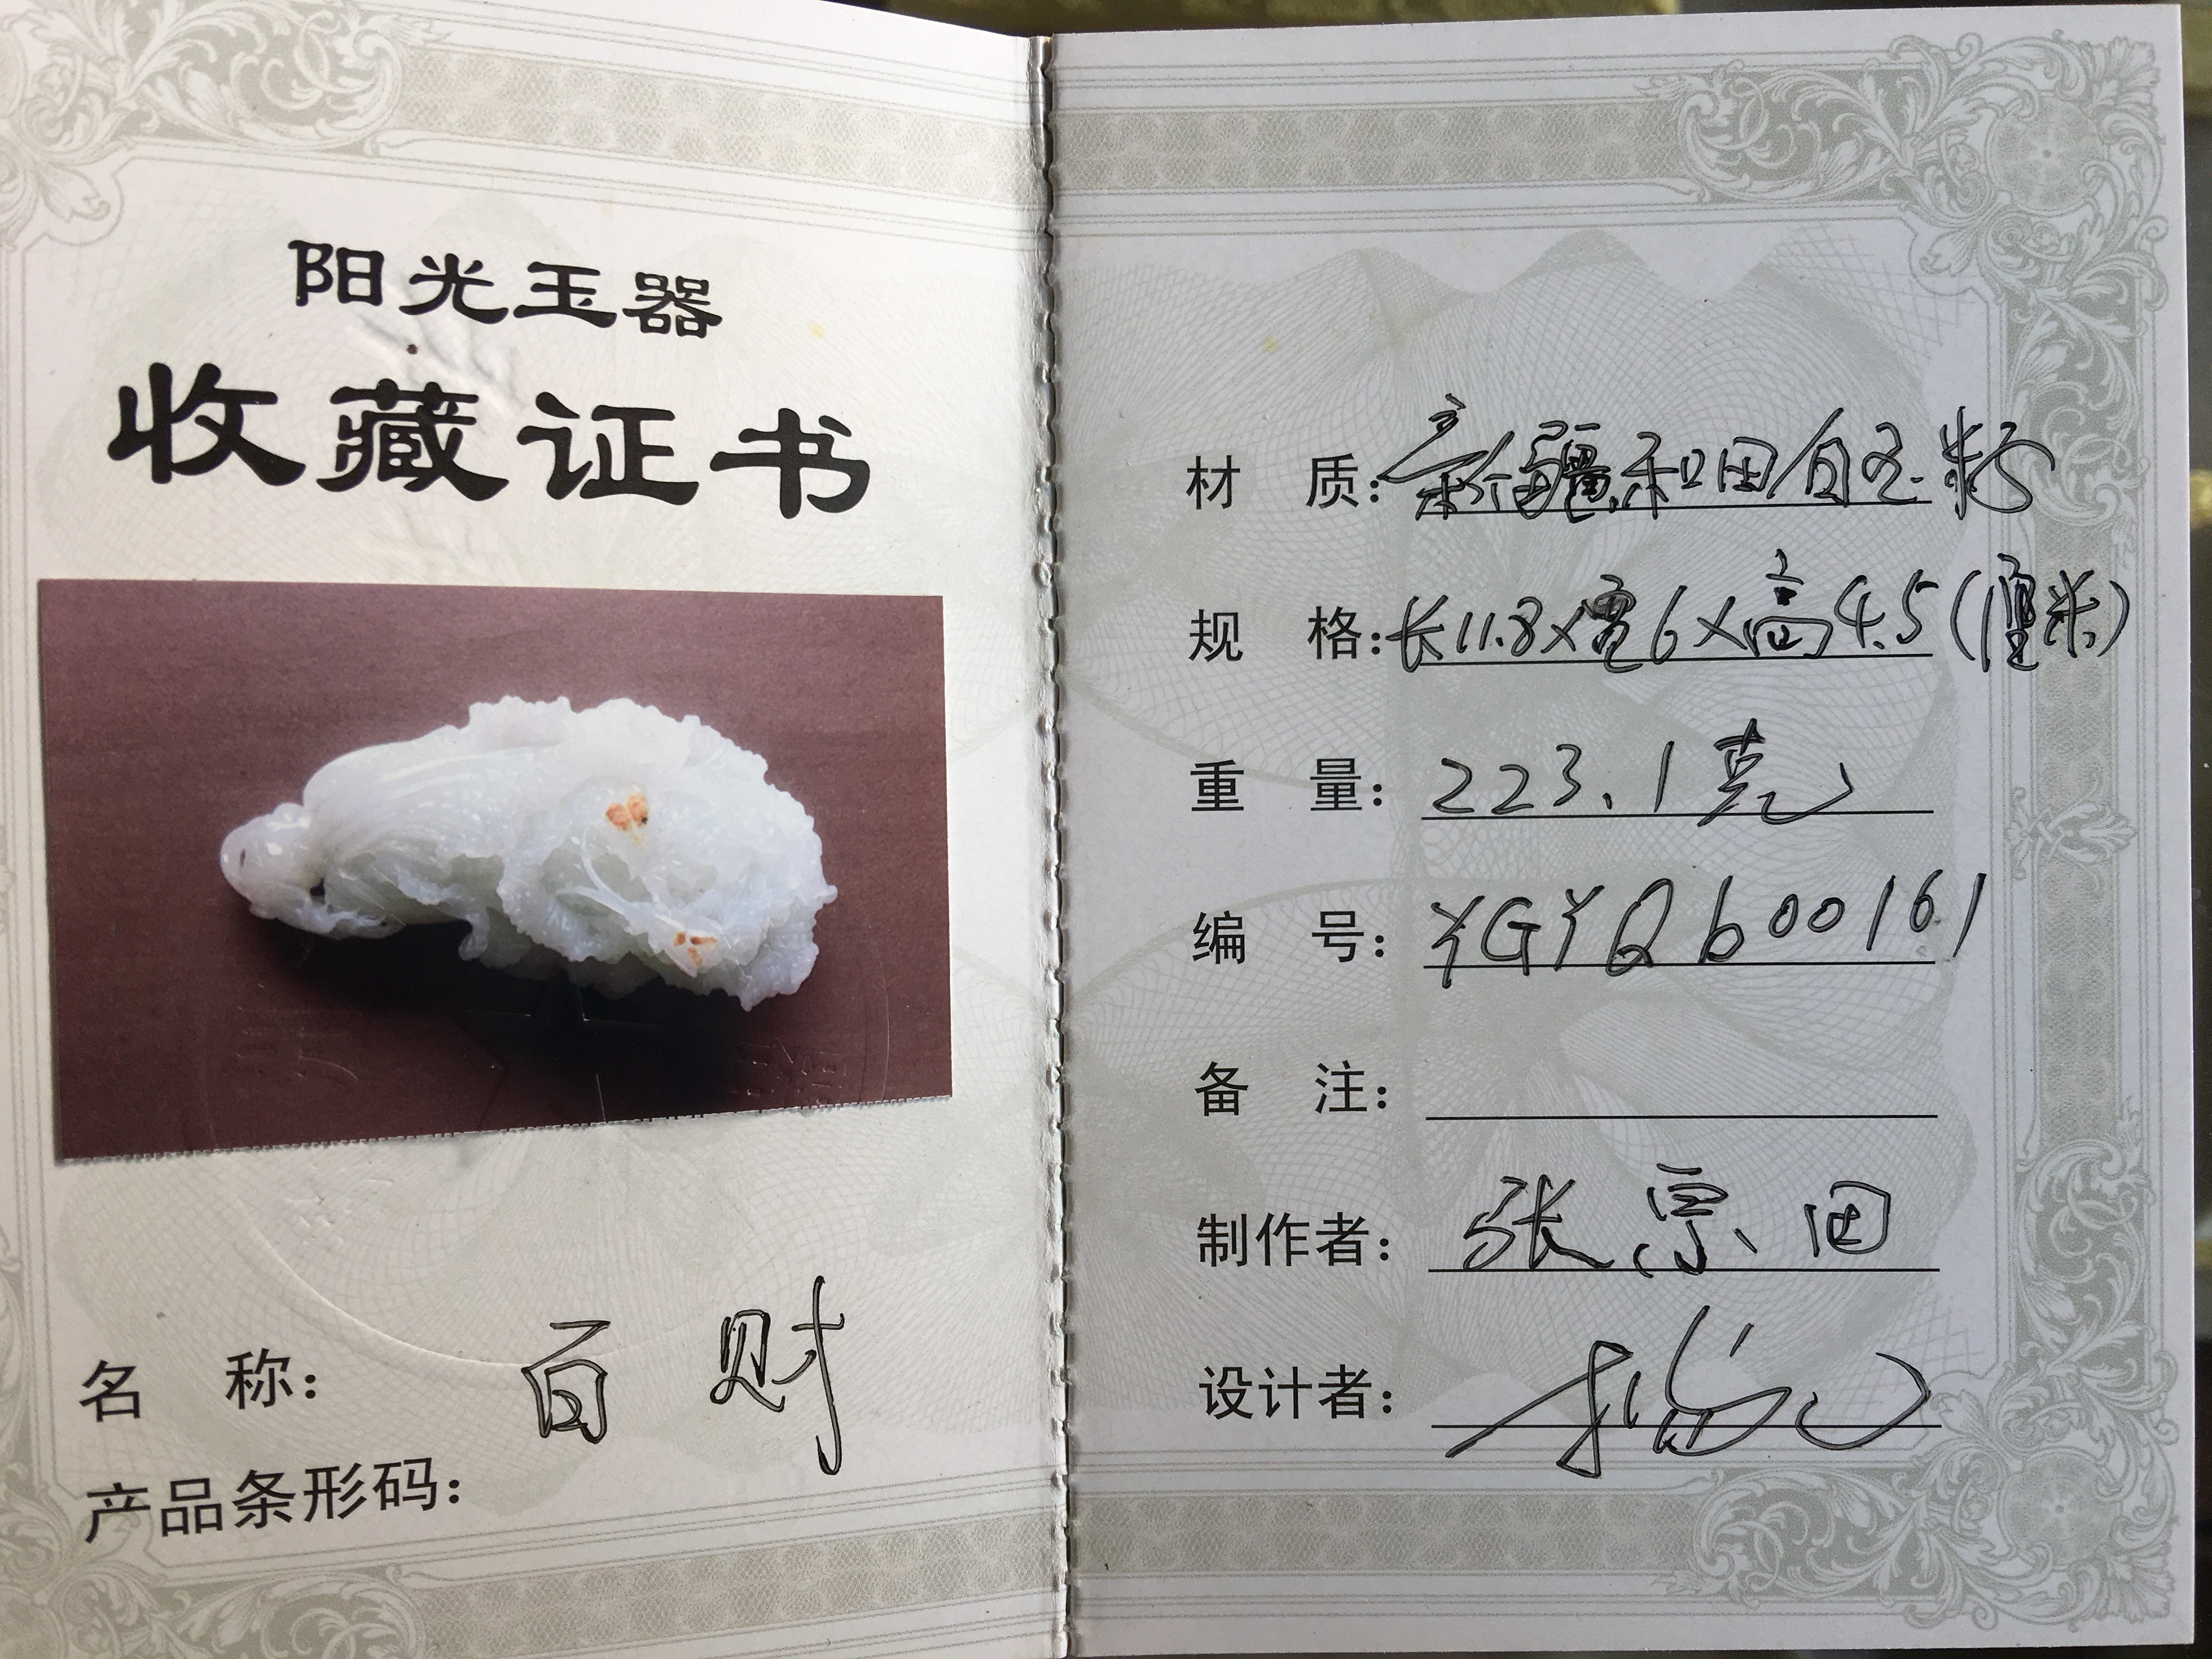 阳光玉器
收藏证书
名 称： 百财
产品条形码：
材 质： 新疆和田白玉籽
规 格： 长11.8×宽6×高4.5(厘米)
重 量： 223.1克
编 号： YGYQb00161
备 注：
制作者： 张宗田
设计者：